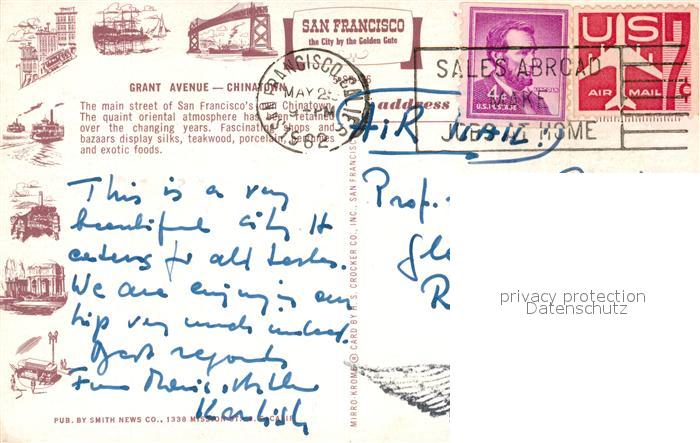 SAN FRANCISCO
the City by the Golden Gate
GRANT AVENUE — CHINATOWN
The main street of San Francisco's Chinatown.
The quaint oriental atmosphere has retained
over the changing years. Fascinating shops and
bazaars display silks, teakwood, porcelain,
and exotic foods.
SAN FRANCISCO, CALIF.
MAY 2
PM
1962
SALES ABROAD
MAKE
JOBS AT HOME
4c
U.S. POSTAGE
US
AIR MAIL
7c
address
AIR MAIL.
This is a very
beautiful city It
caters for all tastes.
We are enjoying our
trip very much indeed.
Best regards
From
Prof.
Gl
R
MIRRO-KROME® CARD BY H. S. CROCKER CO., INC., SAN FRANCISCO
PUB. BY SMITH NEWS CO., 1338 MISSION ST., S.F., CALIF.
privacy protection
Datenschutz